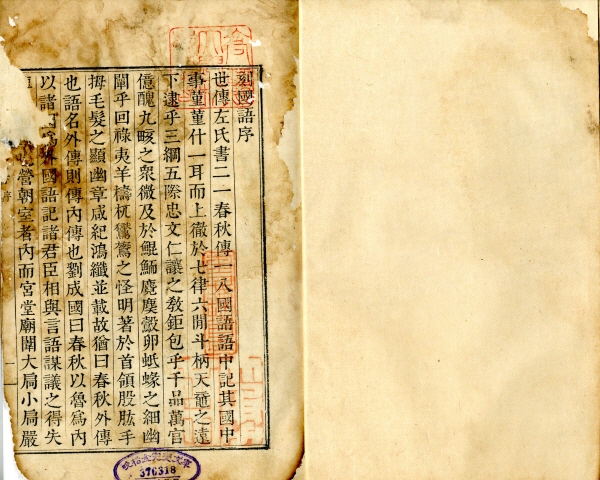 刻國語序
世傳左氏書二一春秋傳一八國語語中記其國中
事菫菫什一耳而上徹於七律六閒斗柄天黿之遠
下逮乎三綱五際忠文仁讓之敎鉅包乎千品萬官
億醜九畡之衆微及於鯤鮞麑麌鷇卵蚳蝝之細幽
闡乎回祿夷羊檮杌鸑鷟之怪明著於首領股肱手
拇毛髮之顯幽章咸紀鴻纖並載故猶曰春秋外傳
也語名外傳則傳內傳也劉成國曰春秋以魯爲內
以諸國爲外國語記諸君臣相與言語謀議之得失
營朝室者內而宮堂廟闈大扃小扃嚴
376318